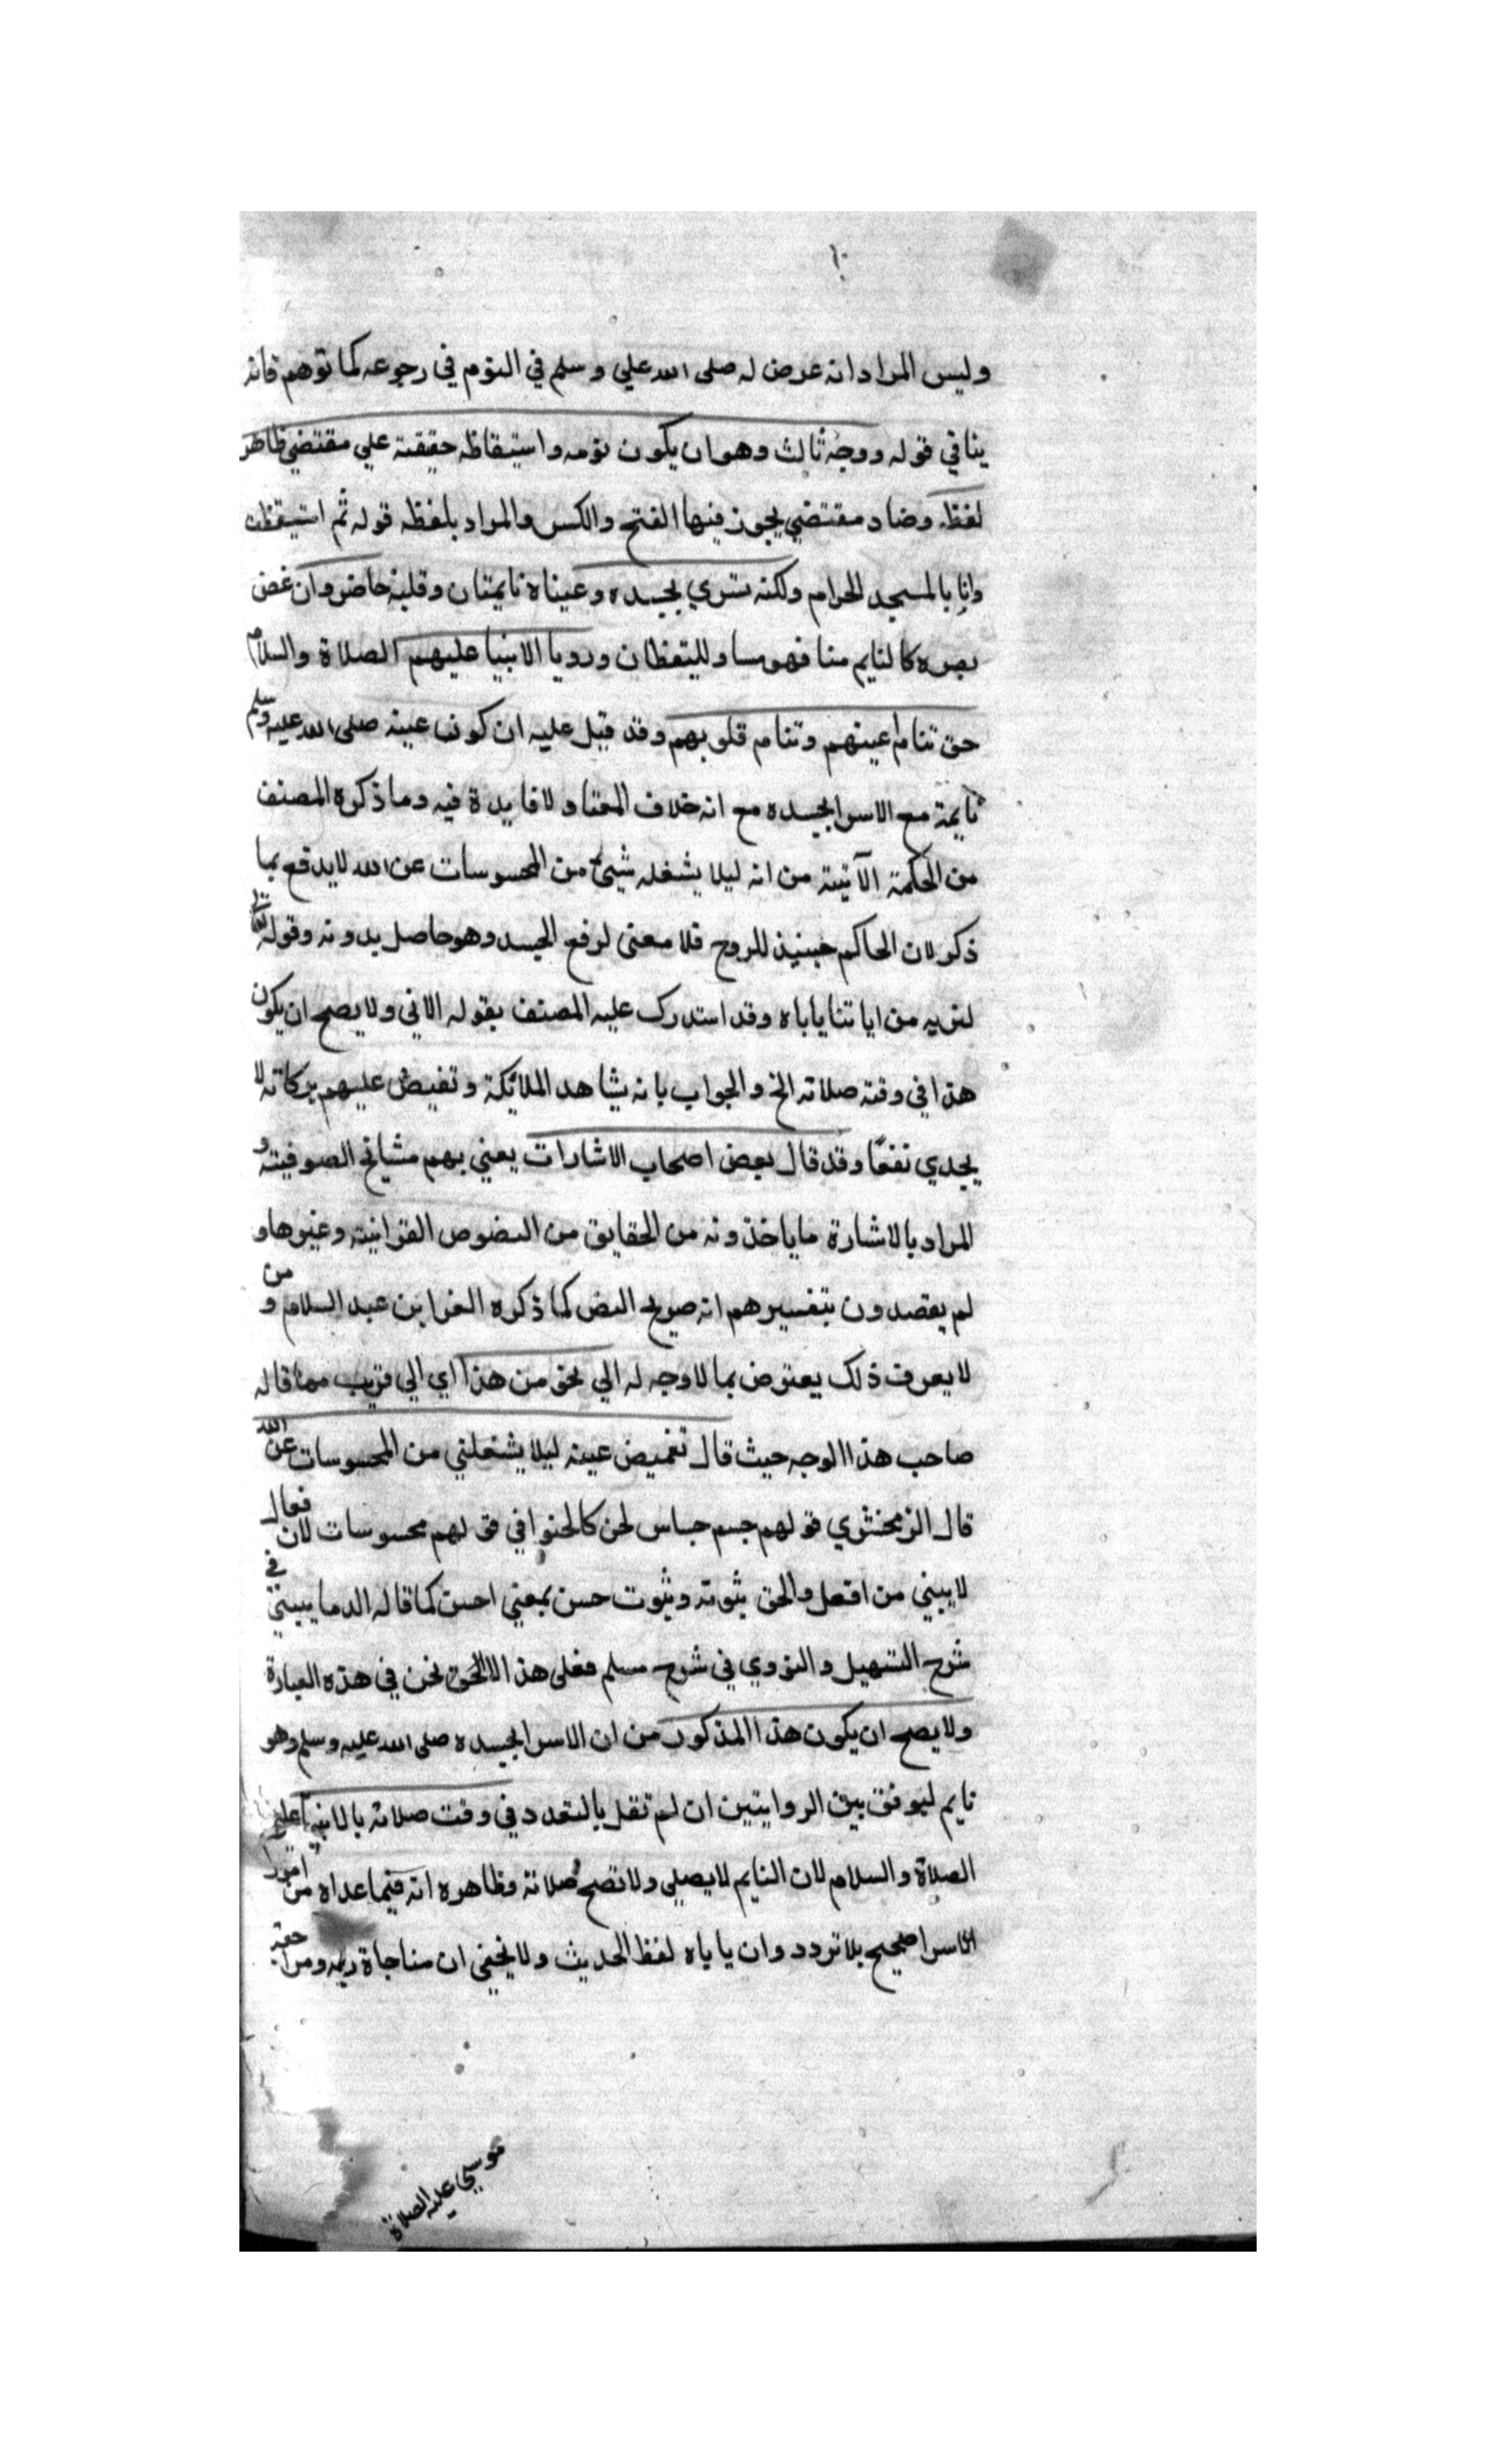 ١٠
وليس المراد انه عرض له صلى الله علي وسلم في النوم في رجوعه كما توهم فانه
ينافي قوله ووجه ثالث وهو ان يكون نومه واستيقاظه حقيقة علي مقتضي ظاهر
لفظه وضاد مقتضي يجوز فيها الفتح والكسر والمراد بلفظه قوله ثم استيقظت
وانا بالمسجد الحرام ولكنه سري بجسده وعيناه نايمتان وقلبه حاضر وان غض
بصره كالنايم منا فهو مساو لليقظان ورويا الانبيا عليهم الصلاة والسلام
حق تنام اعينهم وتنام قلوبهم وقد قيل عليه ان كون عينه صلى الله عليه وسلم
نايمة مع الاسرا بجسده مع انه خلاف المعتاد لا فايدة فيه وما ذكره المصنف
من الحكمة الآتية من انه ليلا يشغله شيئ من المحسوسات عن الله لا يدفع بما
ذكر لان الحاكم حينيذ للروح فلا معنى لرفع الجسد وهو حاصل بدونه وقوله تعالى
لنريه من اياتنا ياباه وقد استدرك عليه المصنف بقوله الاتي ولا يصح ان يكون
هذا في وقت صلاته الخ والجواب بانه يشاهد الملائكة وتفيض عليهم بركاته لا
يجدي نفعًا وقد قال بعض اصحاب الاشارات يعني بهم مشايخ الصوفية و
المراد بالاشارة ما ياخذونه من الحقايق من النصوص القرانية وغيرها و
لم يقصدون بتفسيرهم انه صريح النص كما ذكره العز ابن عبد السلام و من
لا يعرف ذلك يعترض بما لا وجه له الي نحو من هذا اي الي قريب مما قاله
صاحب هذا الوجه حيث قال تغميض عينه ليلا يشغلني من المحسوسات عن الله
قال الزمخشري قولهم جسم حساس لحن كالحنوا في قولهم محسوسات لان فعال
لا يبني من افعل والحق ثبوته وثبوت حسن بمعني احسن كما قاله الدماميني في
شرح التسهيل والنووي في شرح مسلم فعلى هذا لالحن في هذه العبارة
ولا يصح ان يكون هذا المذكور من ان الاسرا بجسده صلى الله عليه وسلم وهو
نايم ليوفق بين الروايتين ان لم نقل بالتعدد في وقت صلاته بالانبيا عليهم
الصلاة والسلام لان النايم لا يصلى ولا تصح صلاته وظاهره انه فيما عداه من امور
الاسرا صحيح بلا تردد وان ياباه لفظ الحديث ولا يخفي ان مناجاة ربه ومراجعة
موسي عليه الصلاة